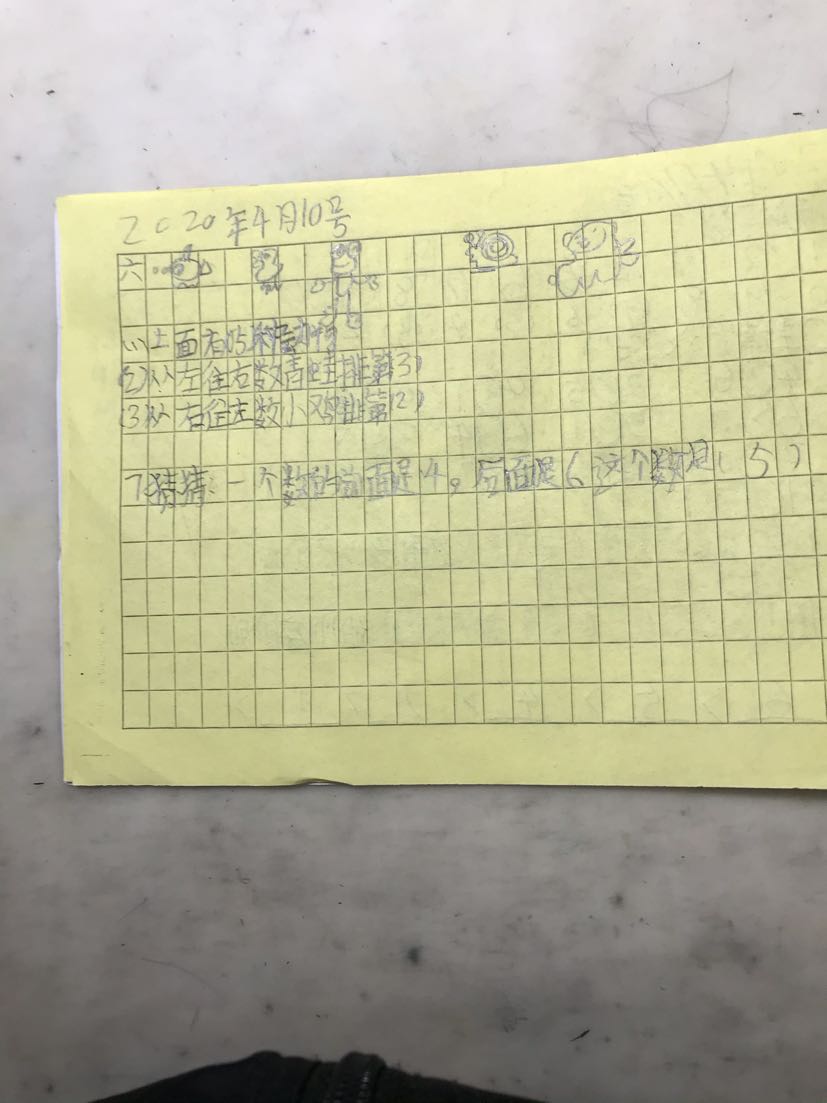 2020年4月10号
六
(1)上面有(5)种动物
(2)从左往右数青蛙排第(3)
(3)从右往左数小鸡排第(2)
7.猜猜:一个数的前面是4。后面是6这个数是(5)